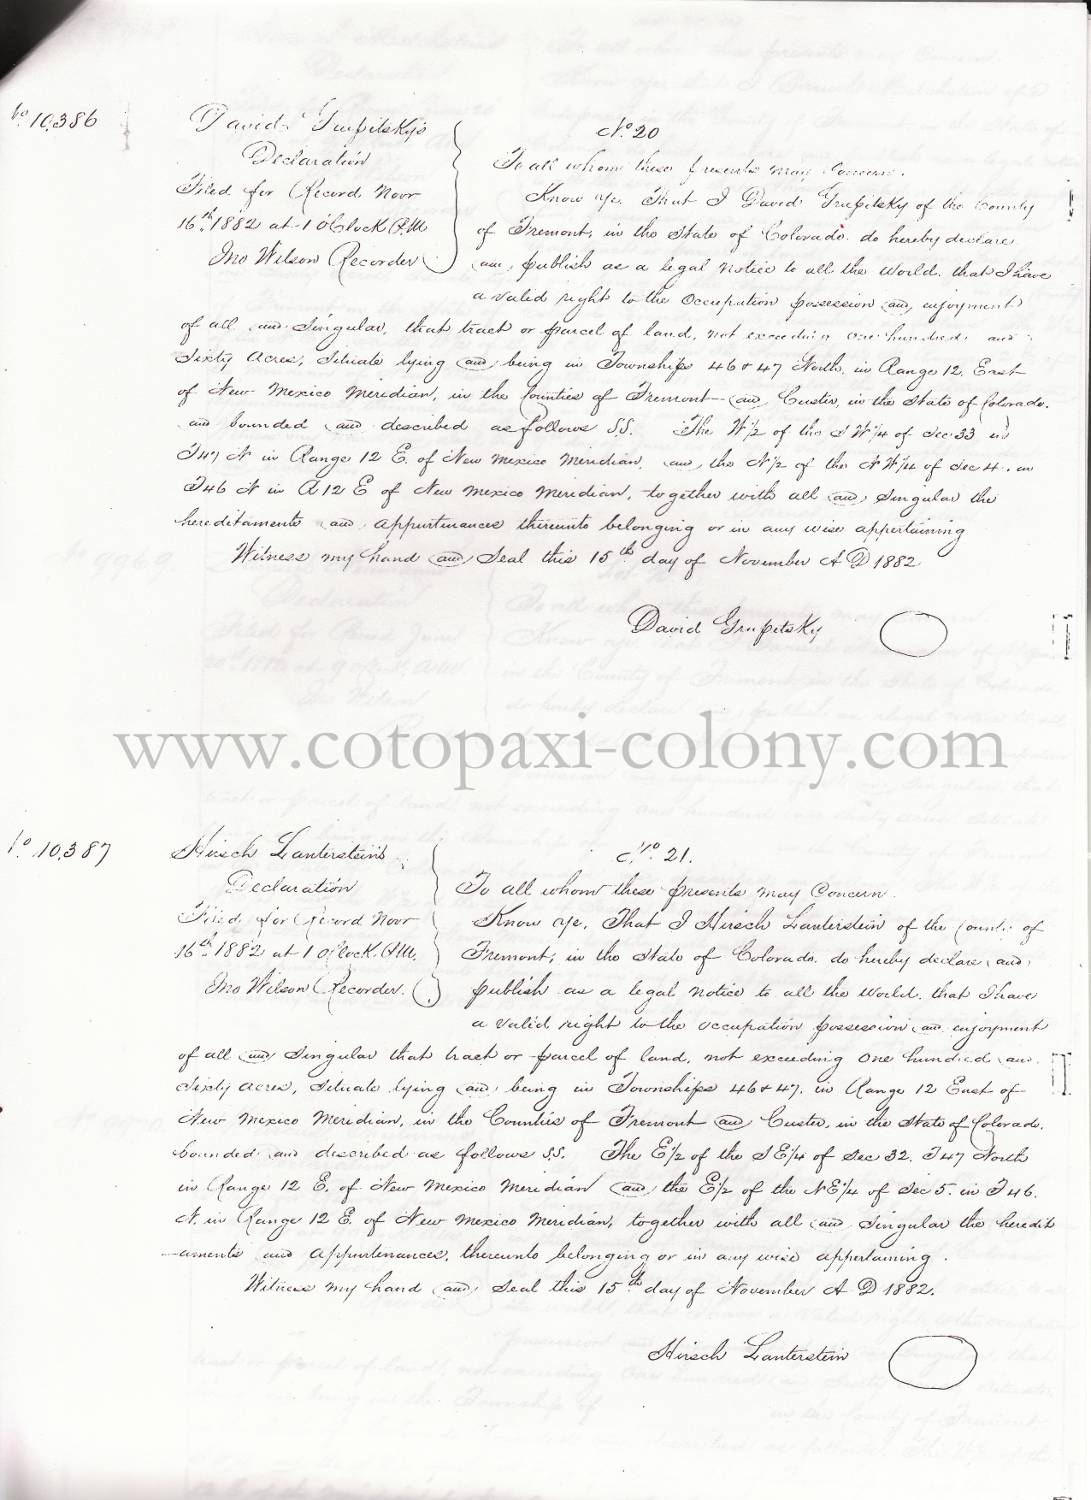 No. 10,386
David Grupitsky's
Declaration
Filed for Record Novr
16th 1882 at 1 O'Clock P.M.
Jno Wilson Recorder
No. 20
To all whom these presents may Concern.
Know Ye, That I David Grupitsky of the County
of Fremont, in the State of Colorado. do hereby declare
and publish as a legal notice to all the World. that I have
a valid right to the Occupation possession and enjoyment
of all and Singular, that tract or parcel of land, not exceeding one hundred and
Sixty Acres, Situate lying and being in Townships 46 & 47 North, in Range 12, East
of New Mexico Meridian, in the Counties of Fremont and Custer, in the State of Colorado.
and bounded and described as follows S.S. The W1/2 of the S W1/4 of Sec 33 in
T 47 N in Range 12 E. of New Mexico Meridian, and, the N1/2 of the N W1/4 of Sec 4. in
T 46 N in R 12 E of New Mexico Meridian, together with all and Singular the
hereditaments and appurtinances thereunto belonging or in any wise appertaining
Witness my hand and Seal this 15th day of November A D 1882
David Grupitsky
www.cotopaxi-colony.com
No. 10,387
Hirsch Lauterstein's
Declaration
Filed for Record Novr
16th 1882 at 1 O'Clock P.M.
Jno Wilson Recorder.
No. 21.
To all whom these presents may Concern.
Know Ye, That I Hirsch Lauterstein of the County of
Fremont, in the State of Colorado. do hereby declare and
publish as a legal notice to all the World. that I have
a valid right to the occupation possession and enjoyment
of all and Singular that tract or parcel of land, not exceeding one hundred and
Sixty acres, Situate lying and being in Townships 46 & 47. in Range 12 East of
New Mexico Meridian, in the Counties of Fremont and Custer, in the State of Colorado.
bounded and described as follows S.S. The E1/2 of the S E1/4 of Sec 32. T 47 North
in Range 12 E. of New Mexico Meridian and the E1/2 of the N E1/4 of Sec 5. in T 46.
N. in Range 12 E. of New Mexico Meridian, together with all and Singular the heredit
-aments and appurtenances, thereunto belonging or in any wise appertaining.
Witness my hand and Seal this 15th day of November A D 1882.
Hirsch Lauterstein